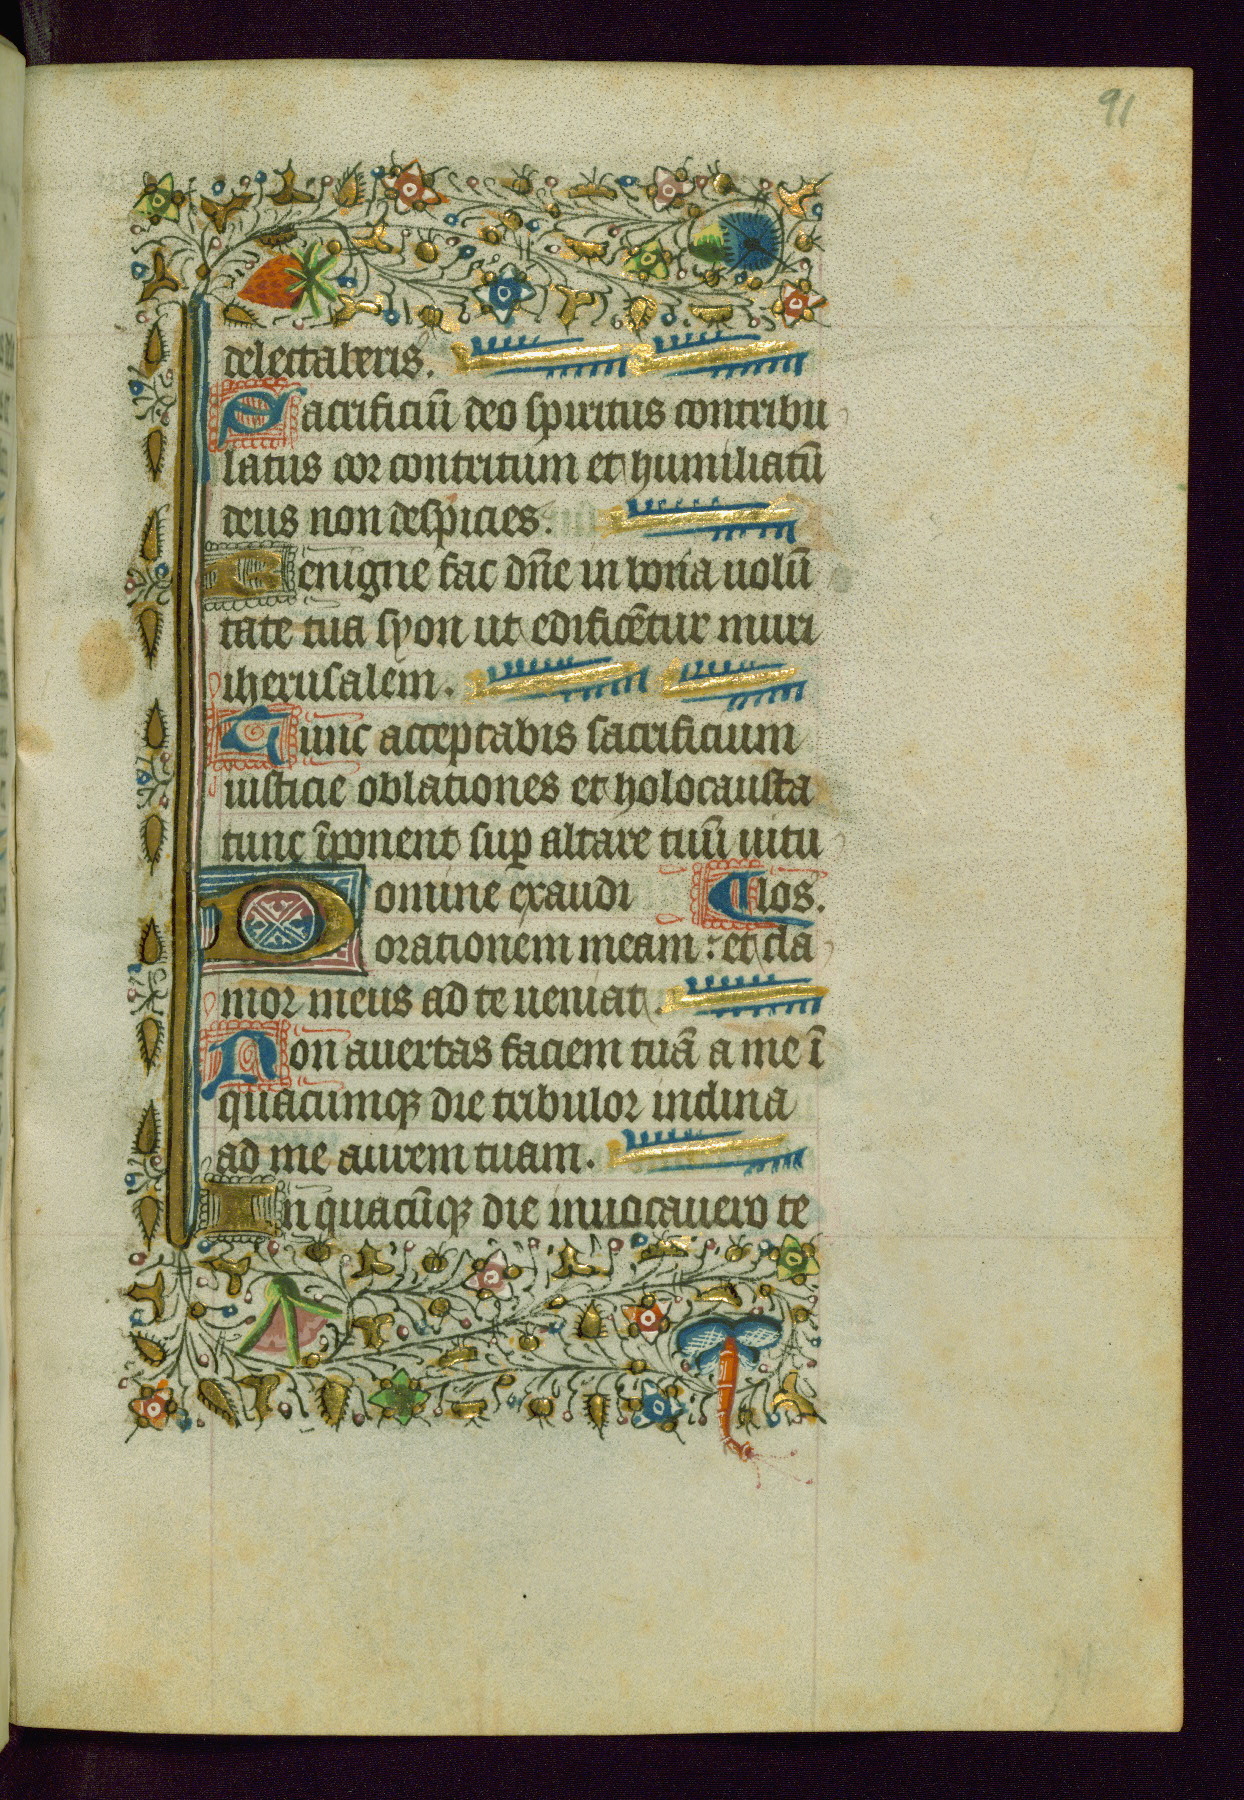 91
delectaberis.
Sacrificiū deo spiritus contribu
latus cor contritum et humiliatū
deus non despicies.
Benigne fac dñe in bona uolū
tate tua syon ut edificētur muri
iherusalem.
Tunc acceptabis sacrificium
iusticie oblationes et holocausta
tunc īponent sup altare tuū uitu
Domine exaudi los.
orationem meam : et cla
mor meus ad te ueniat.
Non auertas faciem tuā a me ī
quacumqꝫ die tribulor inclina
ad me aurem tuam.
In quacūqꝫ die inuocauero te